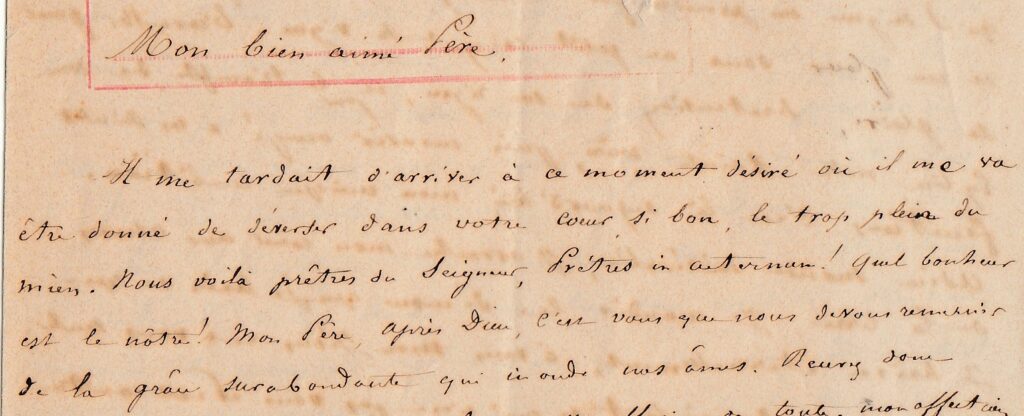 Mon bien aimé Père,
Il me tardait d'arriver à ce moment désiré où il me va
être donné de déverser dans votre coeur, si bon, le trop plein du
mien. Nous voilà prêtres du Seigneur, Prêtres in aeternum! Quel bonheur
est le nôtre! Mon Père, après Dieu, c'est vous que nous devons remercier
de la grâce surabondante qui inonde nos âmes. Recevez donc
de toute mon affection